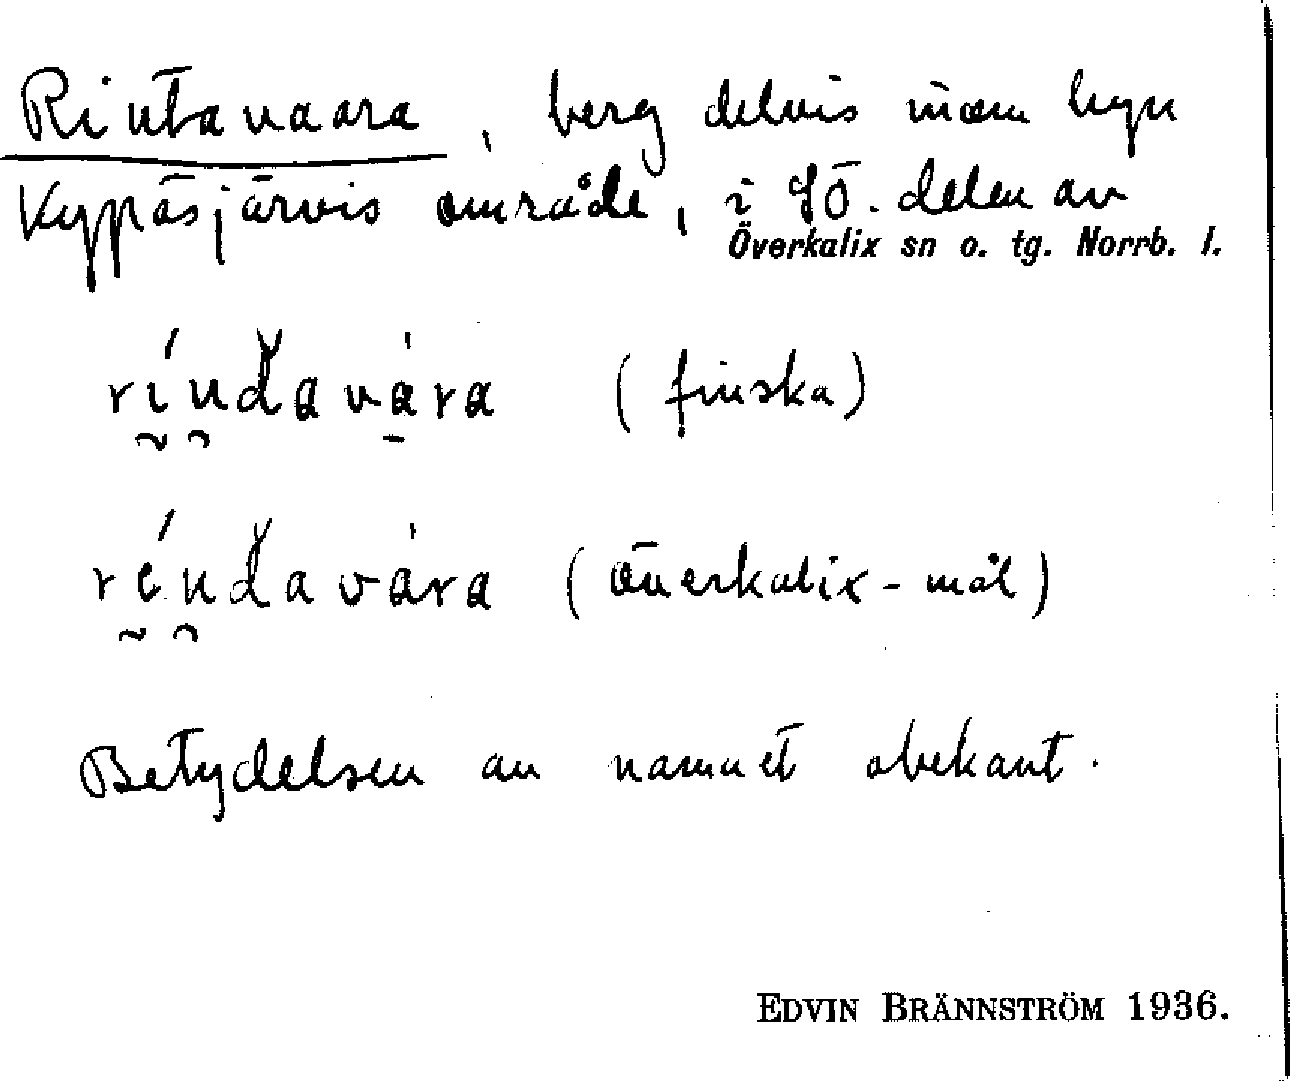 Rintavaara, berg delvis inom byn
Kypäsjärvis område, i SÖ. delen av
Överkalix sn o. tg. Norrb. l.
ríndavàra (finska)
réndavàra (överkalix-mål)
Betydelsen av namnet obekant.
EDVIN BRÄNNSTRÖM 1936.